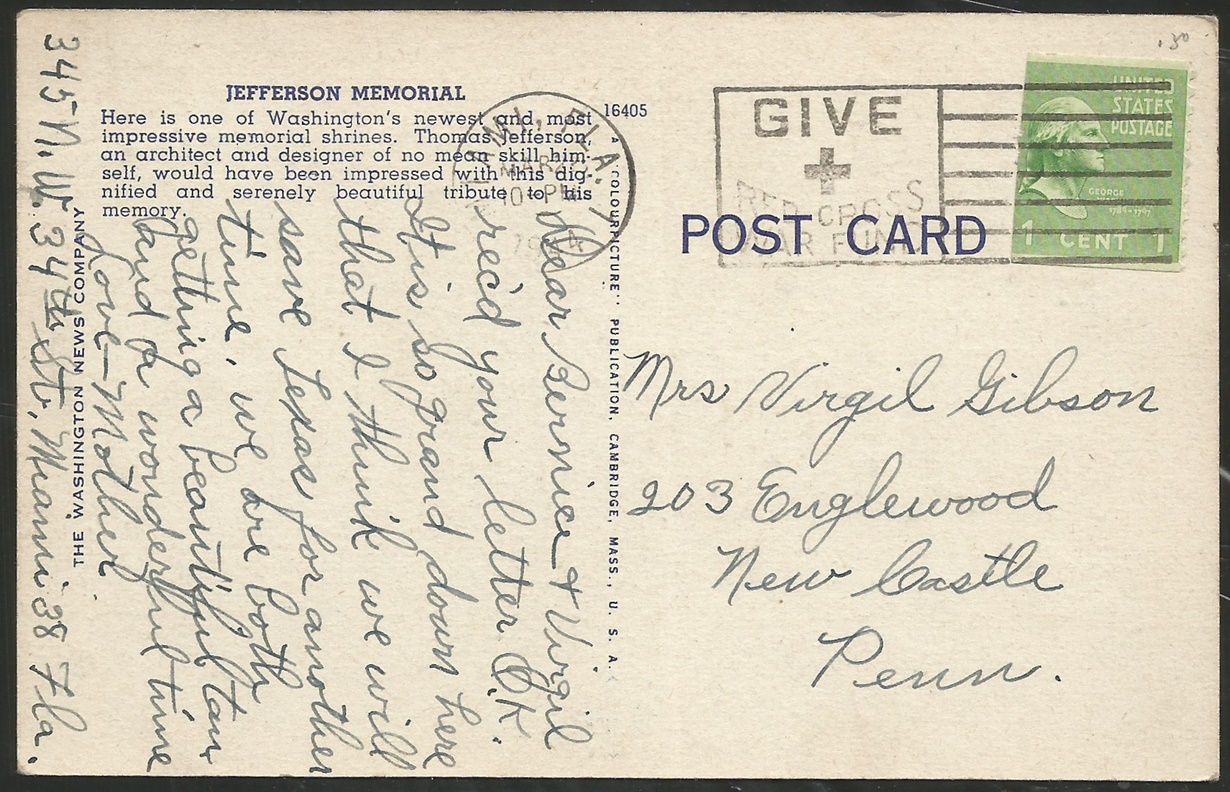 .30
JEFFERSON MEMORIAL
Here is one of Washington's newest and most
impressive memorial shrines. Thomas Jefferson,
an architect and designer of no mean skill him-
self, would have been impressed with this dig-
nified and serenely beautiful tribute to his
memory.
16405
THE WASHINGTON NEWS COMPANY
A "COLOURPICTURE" PUBLICATION, CAMBRIDGE, MASS., U. S. A.
MIAMI, FLA.
MAR
PM
GIVE
+
RED CROSS
WAR FUND
UNITED
STATES
POSTAGE
GEORGE
1 CENT 1
POST CARD
Dear Bernice & Virgil
rec'd your letter O.K.
It is so grand down here
that I think we will
save Texas for another
time. we are both
getting a beautiful tan
and a wonderful time
Love - Mother
345 N.W. 34th St, Miami 38 Fla.
Mrs Virgil Gibson
203 Englewood
New Castle
Penn.